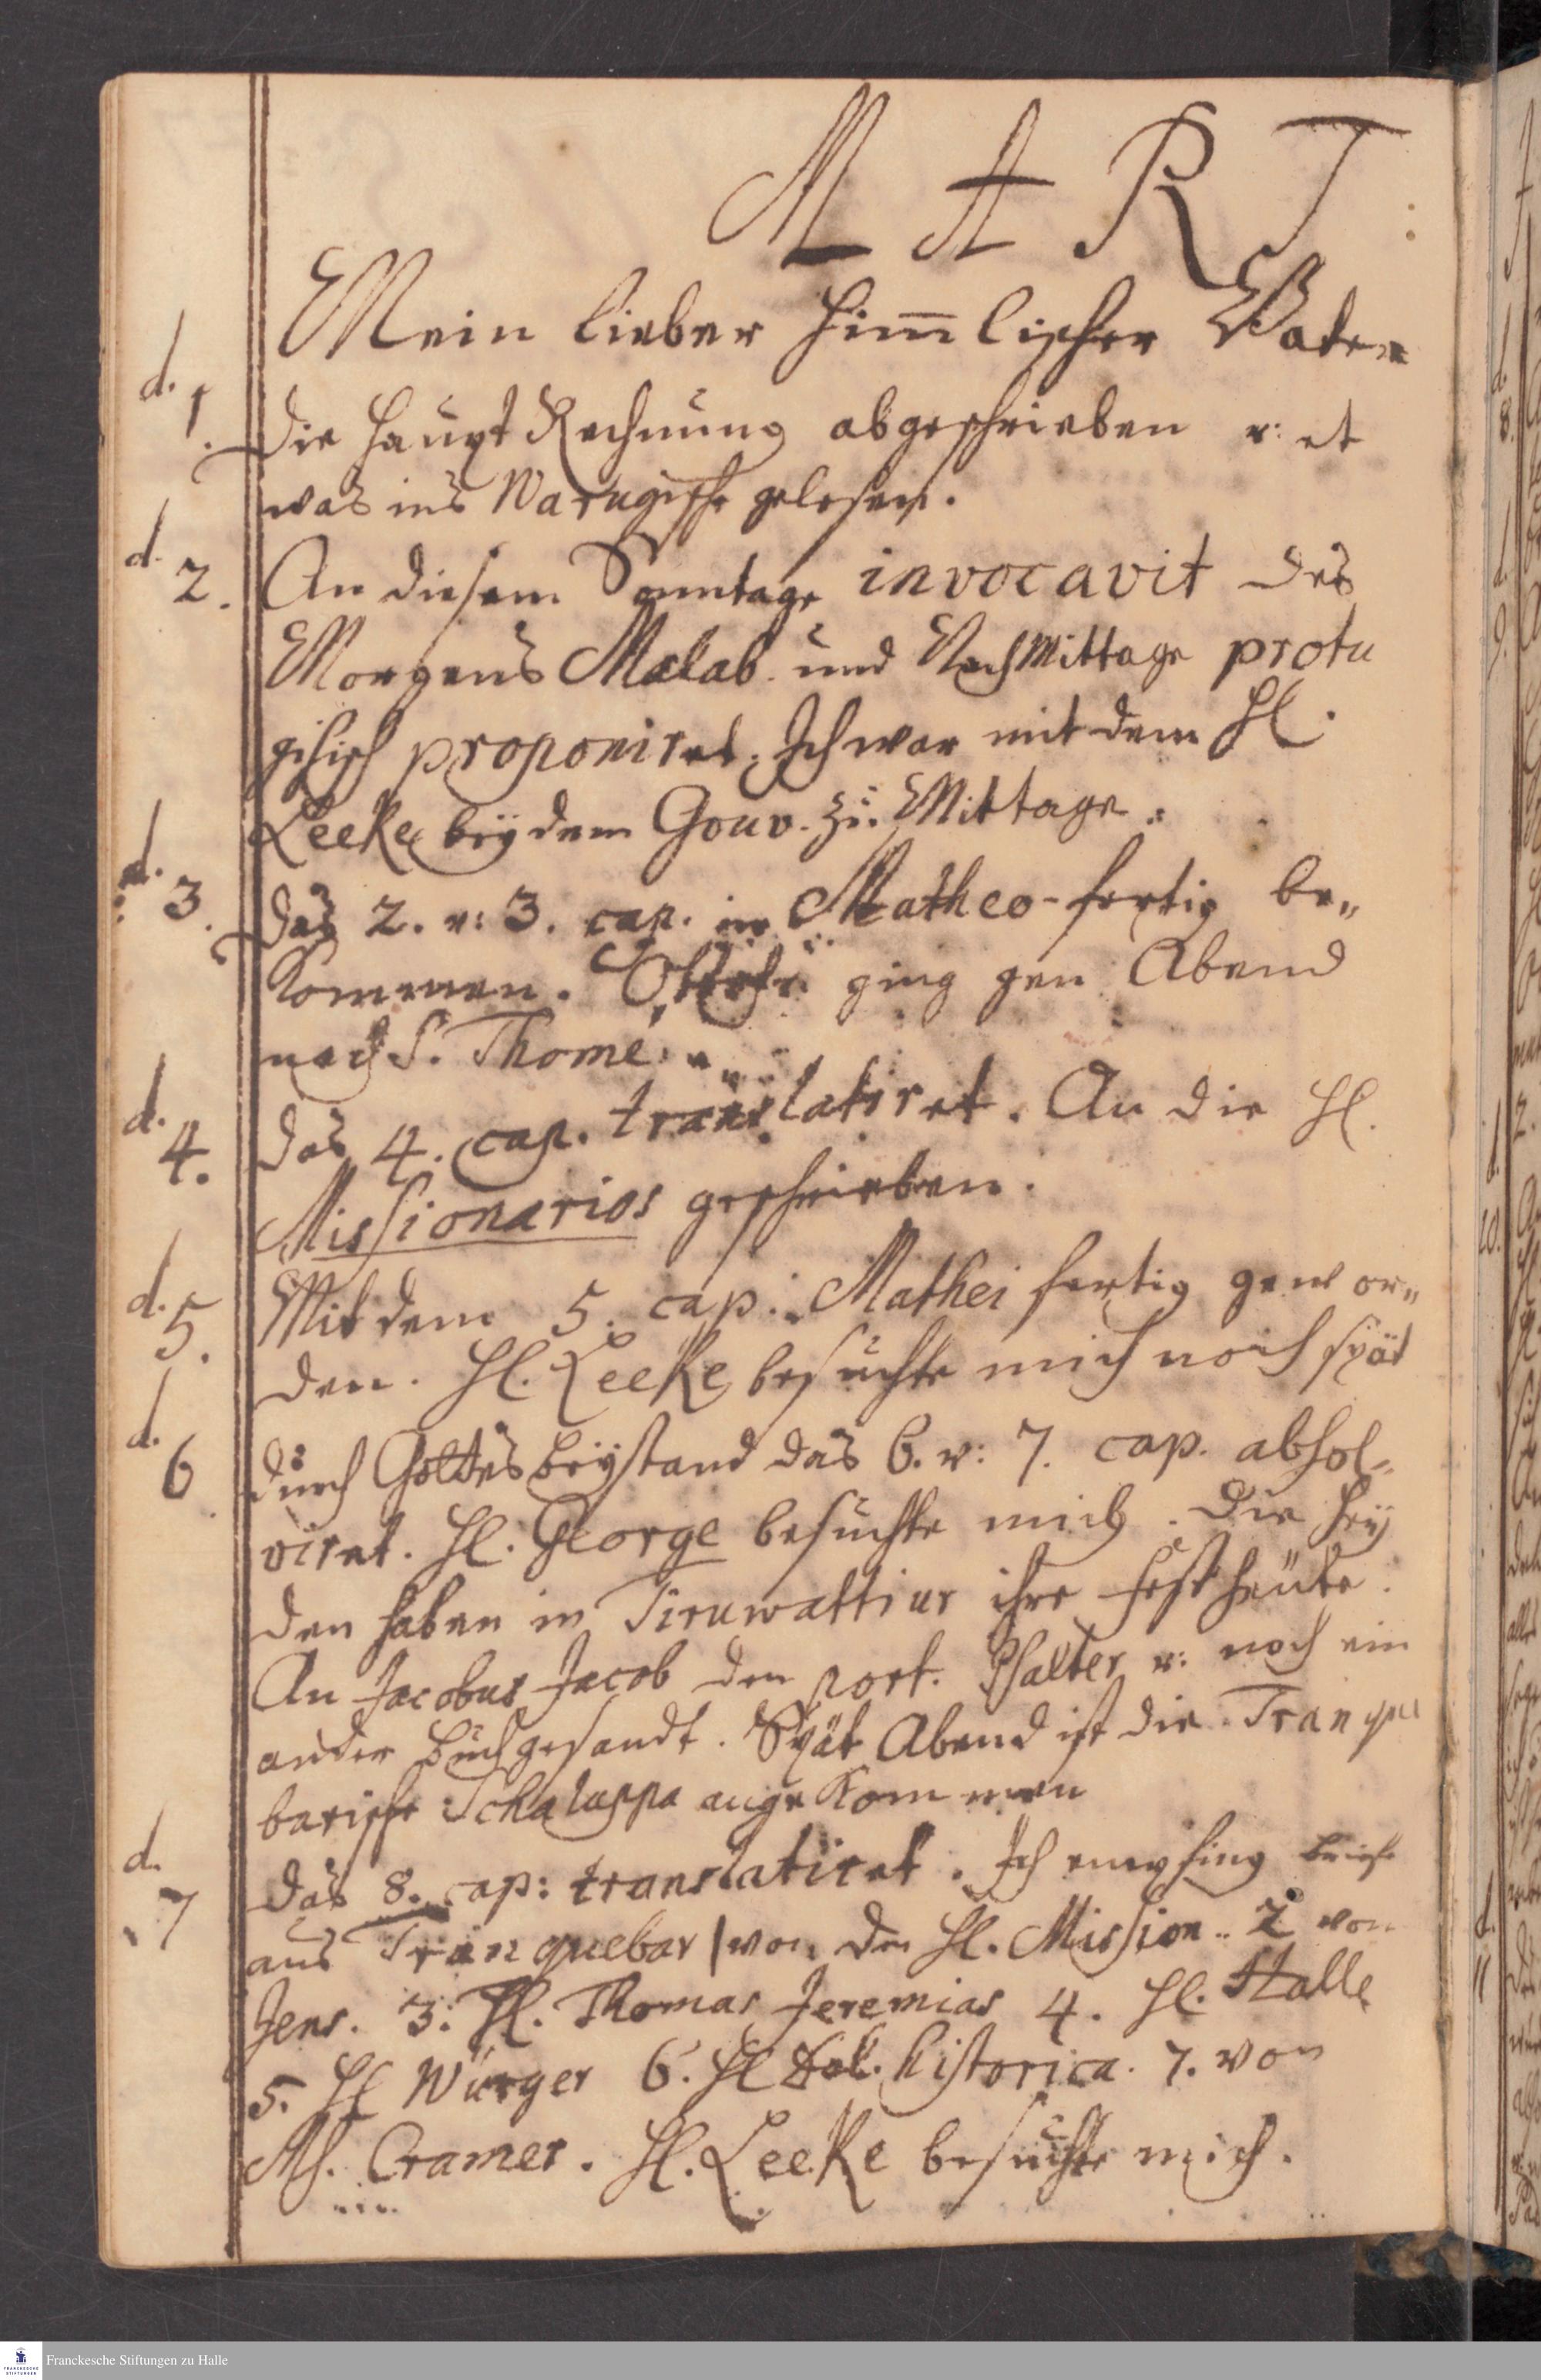 M A R T :
Mein lieber him̅lischer Vater
d. 1. Die Haupt Rechnung abgeschrieben u: et
was ins Warugische gelesen.
d. 2. An diesem Sonntage invocavit des
Morgens Malab. und Nachmittage protu
gisisch proponiret. Ich war mit dem H.
Leeke beÿ dem Gouv. zu Mittage.
d. 3. Das 2. u: 3. cap. in Matheo fertig be„
kommen. ging gen Abend
nach S. Thomé.
d. 4. Das 4. cap. translatiret. An die H.
Missionarios geschrieben.
d. 5. Mit dem 5. cap. Mathei fertig gewor„
den. H. Leeke besuchte mich noch spät
d. 6 durch Gottes beÿstand das 6. u: 7. cap. absol„
viret. H. George besuchte mich. Die Heÿ
den haben in Tiruwattiur ihre Fest heute.
An Jacobus Jacob den port. Psalter u: noch ein
ander buch gesandt. Spät Abend ist die Tranqu
barische Schaluppa angekommen
d. 7 das 8. cap: translatiret. Ich empfing briefe
aus Tranquebar 1 von den H. Mission.. 2 von
Jens. 3: H. Thomas Jeremias 4. H. Stalle
5. H Würger 6. H historica. 7. von
Ms. Cramer. H. Leeke besuchte mich.
Franckesche Stiftungen zu Halle